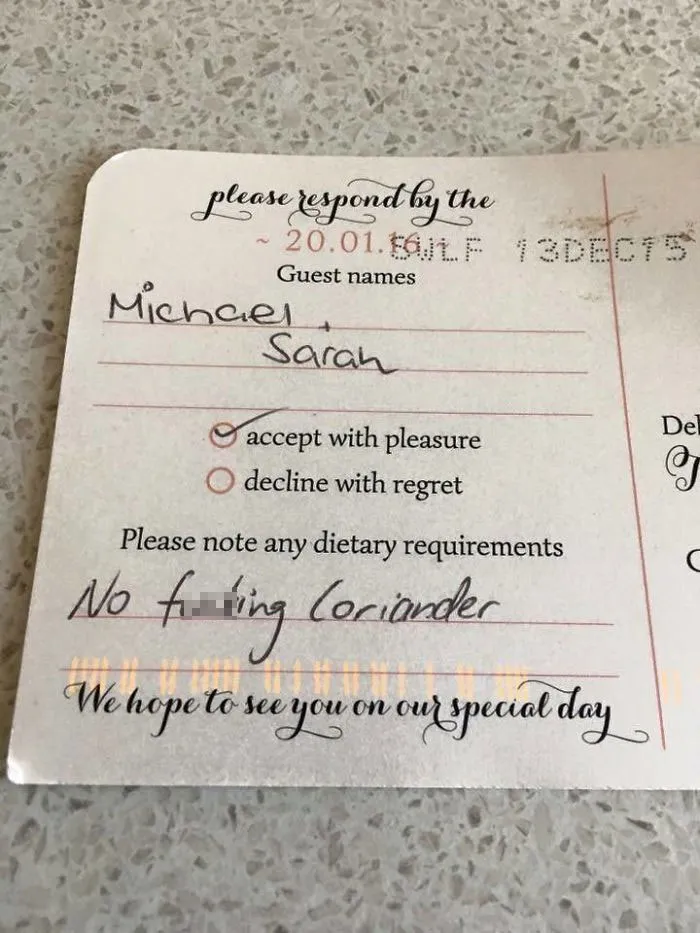 please respond by the
~ 20.01.16 ~
SWLF 13DEC15
Guest names
Michael +
Sarah
accept with pleasure
decline with regret
Please note any dietary requirements
No f ing Coriander
We hope to see you on our special day
Del